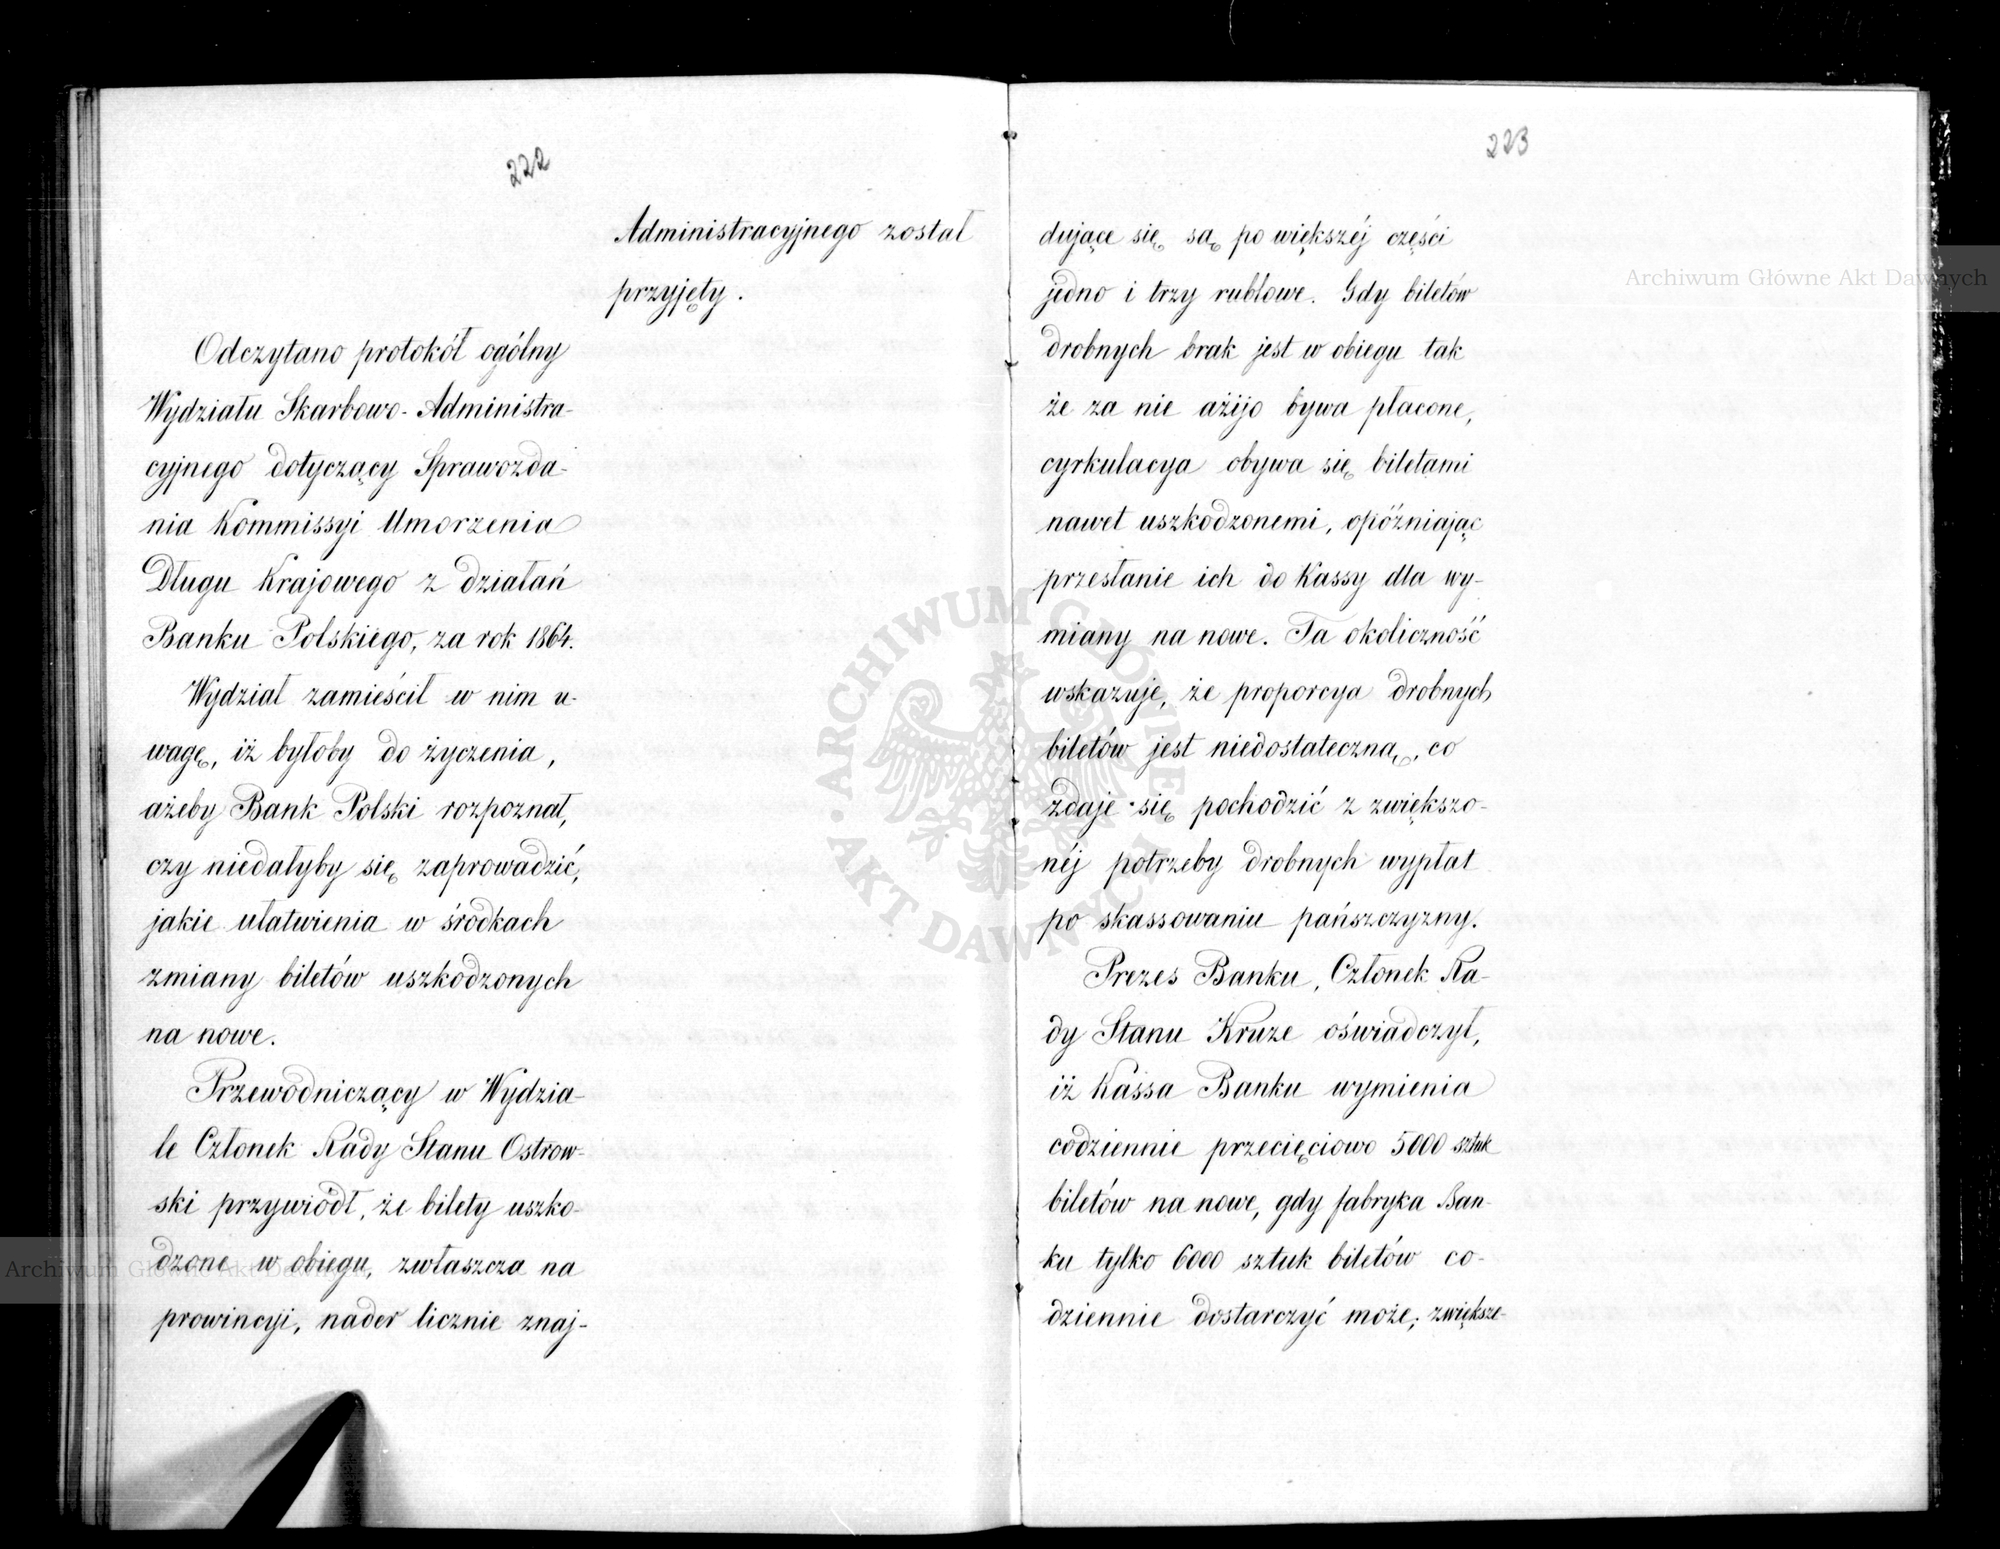 222
Administracyjnego został
przyjęty.
Odczytano protokół ogólny
Wydziału Skarbowo-Administra-
cyjnego dotyczący Sprawozda-
nia Kommissyi Umorzenia
Długu Krajowego z działań
Banku Polskiego, za rok 1864.
Wydział zamieścił w nim u-
wagę, iż byłoby do życzenia,
ażeby Bank Polski rozpoznał,
czy niedałyby się zaprowadzić,
jakie ułatwienia w środkach
zmiany biletów uszkodzonych
na nowe.
Przewodniczący w Wydzia-
le Członek Rady Stanu Ostrow-
ski przywiódł, że bilety uszko-
dzone w obiegu, zwłaszcza na
prowincyi, nader licznie znaj-
223
dujące się są po większéj części
jedno i trzy rublowe. Gdy biletów
drobnych brak jest w obiegu tak
że za nie ażijo bywa płacone,
cyrkulacya obywa się biletami
nawet uszkodzonemi, opóźniając
przesłanie ich do Kassy dla wy-
miany na nowe. Ta okoliczność
wskazuje, że proporcya drobnych
biletów jest niedostateczną, co
zdaje się pochodzić z zwiększo-
néj potrzeby drobnych wypłat
po skassowaniu pańszczyzny.
Prezes Banku, Członek Ra-
dy Stanu Kruze oświadczył,
iż Kassa Banku wymienia
codziennie przecięciowo 5000 sztuk
biletów na nowe, gdy fabryka Ban-
ku tylko 6000 sztuk biletów co-
dziennie dostarczyć może; zwiększe-
Archiwum Główne Akt Dawnych
Archiwum Główne Akt Dawnych
ARCHIWUM GŁÓWNE
AKT DAWNYCH